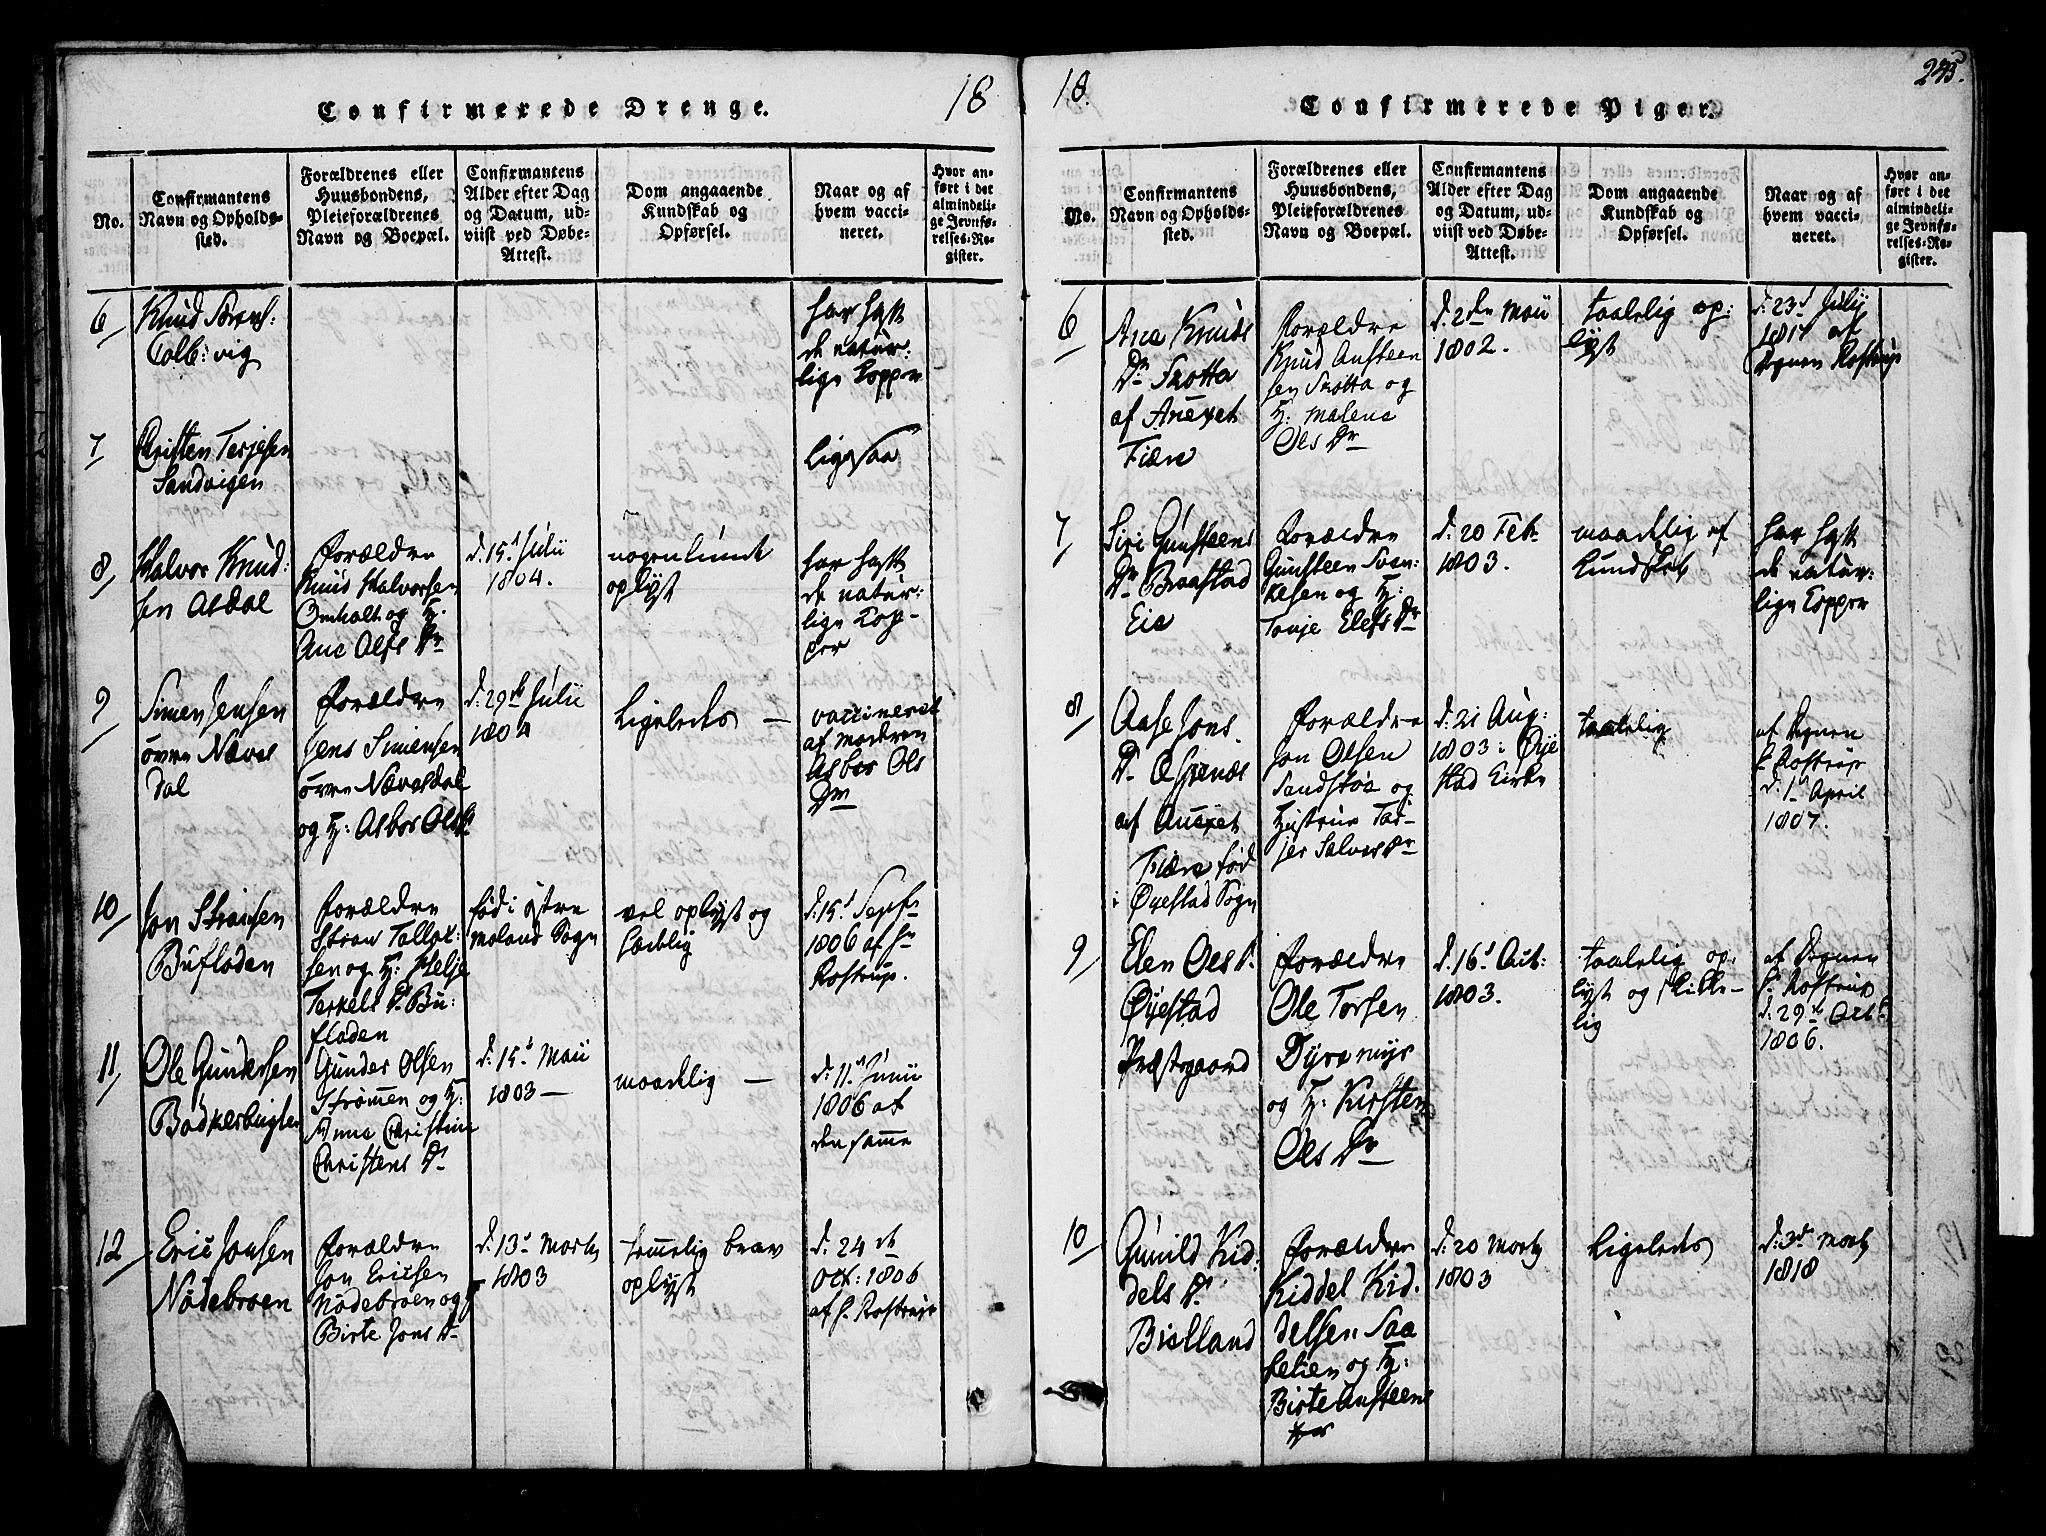 18
Confirmerede Drenge.
No.
Confirmantens
Navn og Opholds-
sted.
Forældrenes eller
Huusbondens,
Pleieforældrenes
Navn og Boepæl.
Confirmantens
Alder efter Dag
og Datum, ud-
viist ved Døbe-
Attest.
Dom angaaende
Kundskab og
Opførsel.
Naar og af
hvem vacci-
neret.
Hvor an-
ført i det
almindeli-
ge Jevnfø-
relses-Re-
gister.
6
Knud
Colb: vig
har haft
de natur:
lige Kopper
7
Christen Terjesen
Sandvigen
ligesaa
8
Halvor Knud:
sen Asdal
Forældre
Knud Halvorsen
Omholt og H.
Ane Olss Dr
d: 15d Julii
1804.
nogenlunde
oplyst
har haft
de natur:
lige Kop-
per
9
Simen Jensen
øvre Næves
dal
Forældre
Jens Simensen
øvre Nævesdal
og H: Asbor Ols
d: 29de Julii
1804
Ligeledes —
vaccineret
af Modren
Asbor Ols
Dr
10
Jon
Bufloden
Forældre
sen og H: Helje
Terkels D. Bu:
floden
fød i østre
Moland Sogn
vel oplyst og
sædelig
d: 15d Septr
1806 af Hr
Rostrup.
11
Ole Gundersen
Bødkerbugten
Gunder Olsen
Strømmen og H:
Anne Christine
Christens Dr
d: 15d Maii
1803 —
maadelig —
d: 11d Junii
1806 af
den samme
12
Eric Jonsen
Nødebroen
Forældre
Jon Ericsen
Nødebroen og H
Birte Jons Dr
d: 13d Marty
1803
temmelig brav
oplyst
d. 24de
Oct: 1806
af H. Rostrup
18.
245.
Confirmerede Piger.
No.
Confirmantens
Navn og Opholds-
sted.
Forældrenes eller
Huusbondens,
Pleieforældrenes
Navn og Boepæl.
Confirmantens
Alder efter Dag
og Datum, ud-
viist ved Døbe-
Attest.
Dom angaaende
Kundskab og
Opførsel.
Naar og af
hvem vacci-
neret.
Hvor an-
ført i det
almindeli-
ge Jevnfø-
relses-Re-
gister.
6
Ane Knuds
Dr Skotta
af Anexet
Fiære
Forældre
Knud Austeen
sen Skotta og
H. Malene
Ols Dr
d. 2den Maii
1802.
taalelig op:
lyst
d: 23d July
af
Degnen Rostrup
7
Siri Gunsteens
Dr Braastad
Eie
Forældre
Gunsteen Sven-
kesen og H:
Tonje Elefs Dr
d: 20 Feb.
1803.
maadelig af
Kundskab
har haft
de natur:
lige Kopper
8
Aase Jons.
Dr Espenæs
af Anexet
Fiære fød
i Øyestad Sogn
Forældre
Jon Olsen
Sandstøe og
Hustrue Tar-
jer Salves Dr
d: 21 Aug:
1803 i Øye
stad Kirke
taalelig
af Degnen
H. Rostrup
d: 1d April
1807.
9
Elen Oles D.
Øyestad
Præstegaard
Forældre
Ole Torsen
Dyremyr
og H. Kirsten
Oles Dr
d: 16d Oct:
1803.
taalelig op-
lyst og skikke-
lig
af Degnen
H. Rostrup
d. 29de Octb
1806.
10
Gunild Kid:
dels D.
Bielland
Forældre
Kiddel Kid.
delsen Saa
og H:
Birte Austeens
d: 20 Marty
1803
Ligeledes
d: 3d Marty
1818